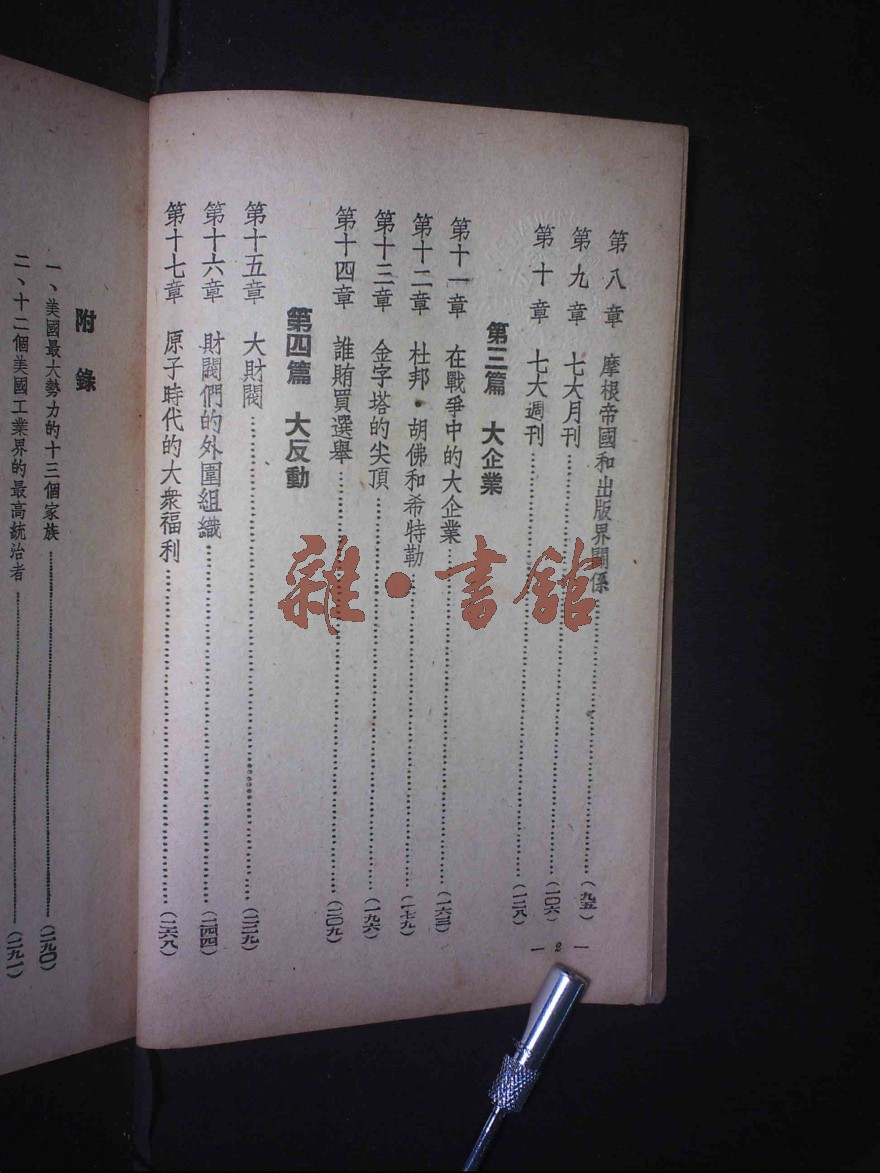 第八章 摩根帝國和出版界關係……(九五)
第九章 七大月刊……(一〇六)
第十章 七大週刊……(一二八)
第三篇 大企業
第十一章 在戰爭中的大企業……(一六三)
第十二章 杜邦·胡佛和希特勒……(一七九)
第十三章 金字塔的尖頂……(一九六)
第十四章 誰賄買選舉……(二〇九)
第四篇 大反動
第十五章 大財閥……(二二九)
第十六章 財閥們的外圍組織……(二四四)
第十七章 原子時代的大衆福利……(二六八)
— 2 —
附錄
一、美國最大勢力的十三個家族……(二九〇)
二、十二個美國工業界的最高統治者……(二九一)
雜·書館